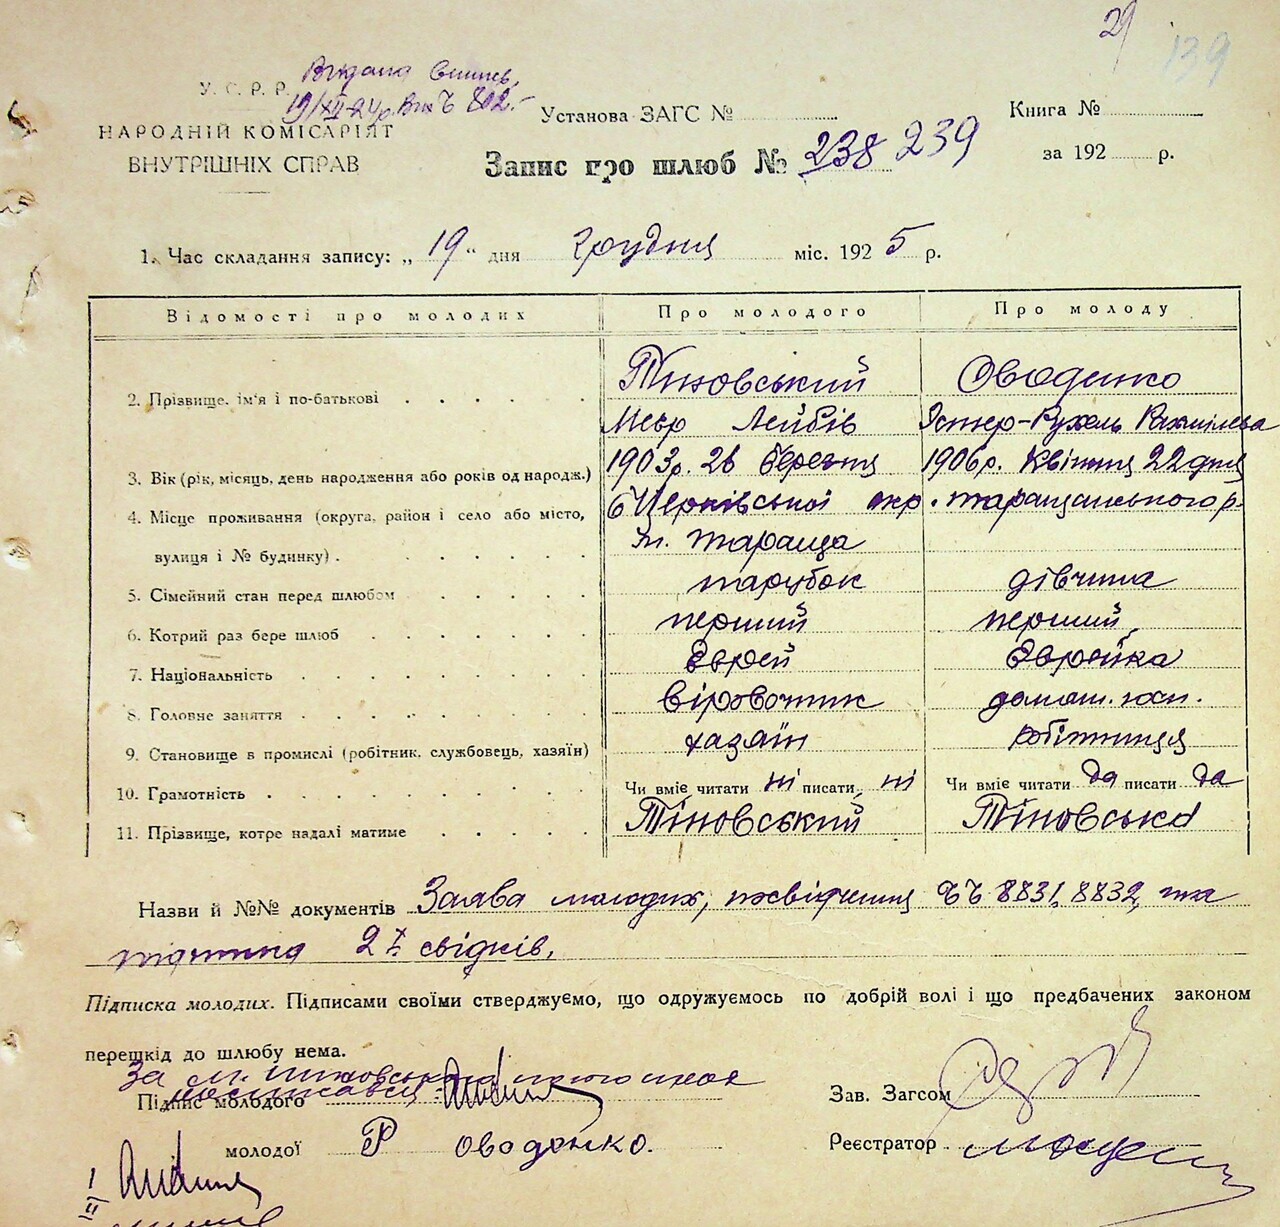 29
139
У. С. Р. Р.
НАРОДНІЙ КОМІСАРІЯТ
ВНУТРІШНІХ СПРАВ
Установа ЗАГС №
Книга №
за 192 р.
Запис про шлюб № 238 239
1. Час складання запису: „19“ дня грудня міс. 1925 р.
Відомості про молодих Про молодого Про молоду
2. Прізвище, ім'я і по-батькові Тіновський Оводенко
Меєр Лейбів Эстер-Рухель Рахмілева
3. Вік (рік, місяць, день народження або років од народж.) 1903р. 26 березня 1906р. Квітня 22 дня
4. Місце проживання (округа, район і село або місто, вулиця і № будинку) окр. Таращанського р.
м. Тараща
5. Сімейний стан перед шлюбом парубок дівчина
6. Котрий раз бере шлюб перший перший
7. Національність Єврей Єврейка
8. Головне заняття віровочник домаш. хоз.
9. Становище в промислі (робітник, службовець, хазяїн) хазяїн робітниця
10. Грамотність Чи вміє читати ні писати ні Чи вміє читати да писати да
11. Прізвище, котре надалі матиме Тіновський Тіновська
Назви й №№ документів Заява молодих, посвідчення 8831, 8832, та
2х свідків,
Підписка молодих. Підписами своїми стверджуємо, що одружуємось по добрій волі і що предбачених законом
перешкід до шлюбу нема.
За м.
Підпис молодого
Зав. Загсом
молодої Р Оводенко.
Реєстратор
I
II